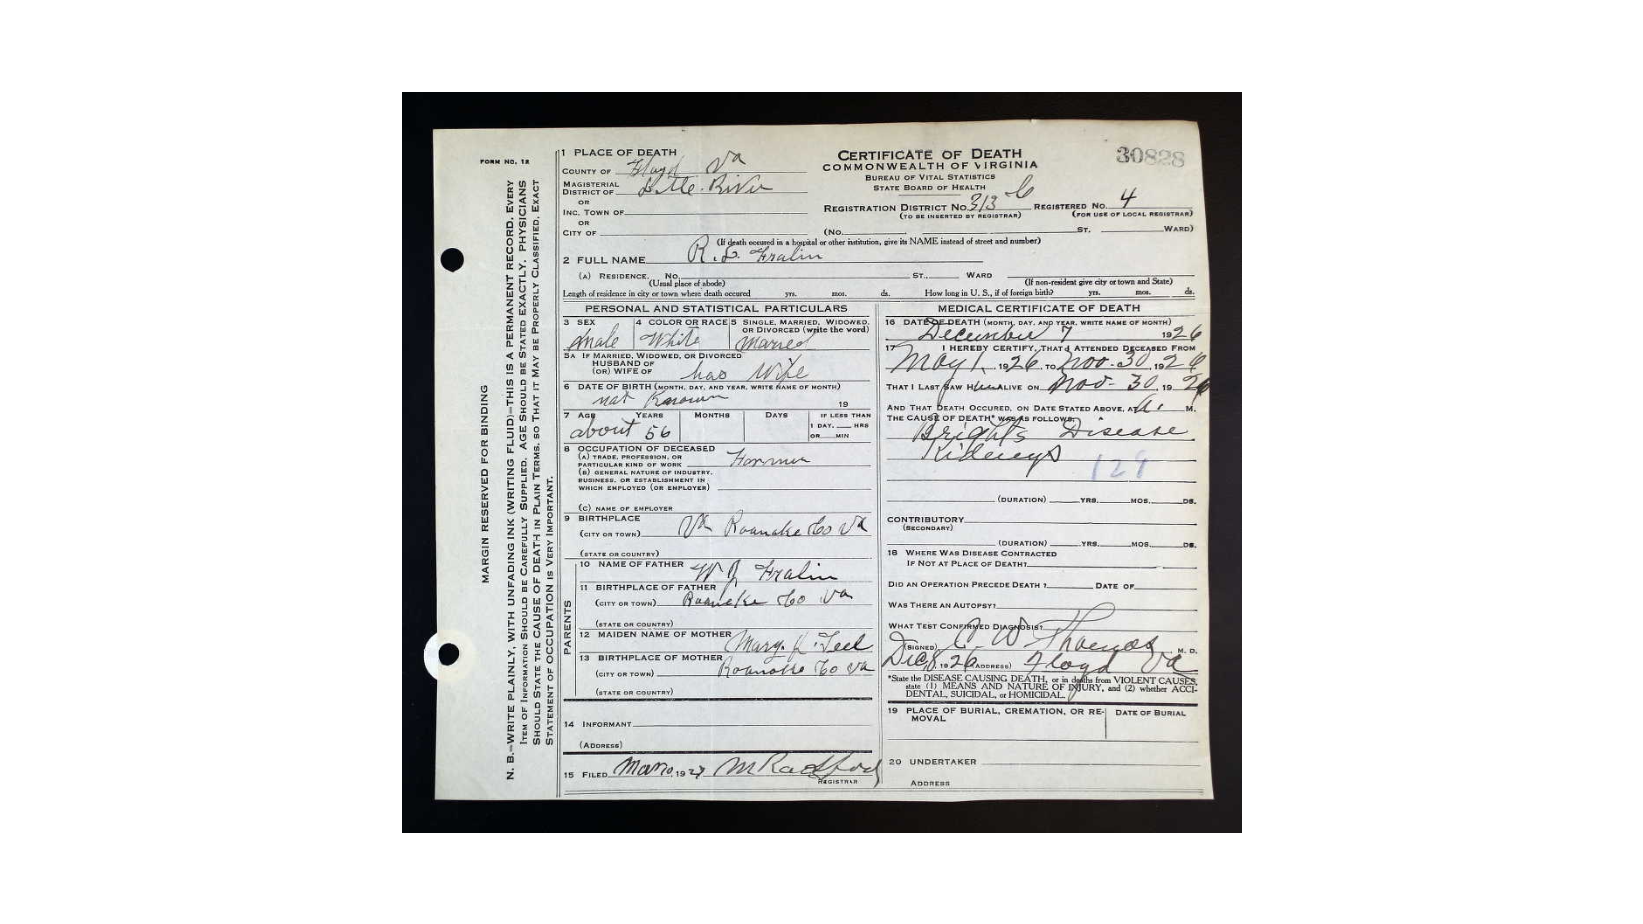 FORM NO. 12
MARGIN RESERVED FOR BINDING
N. B.—WRITE PLAINLY, WITH UNFADING INK (WRITING FLUID)—THIS IS A PERMANENT RECORD. EVERY
ITEM OF INFORMATION SHOULD BE CAREFULLY SUPPLIED. AGE SHOULD BE STATED EXACTLY. PHYSICIANS
SHOULD STATE THE CAUSE OF DEATH IN PLAIN TERMS, SO THAT IT MAY BE PROPERLY CLASSIFIED. EXACT
STATEMENT OF OCCUPATION IS VERY IMPORTANT.
1 PLACE OF DEATH
COUNTY OF Floyd Va
MAGISTERIAL
DISTRICT OF Little River
OR
INC. TOWN OF
OR
CITY OF
CERTIFICATE OF DEATH
COMMONWEALTH OF VIRGINIA
BUREAU OF VITAL STATISTICS
STATE BOARD OF HEALTH
30828
REGISTRATION DISTRICT NO. 313 REGISTERED NO. 4
(TO BE INSERTED BY REGISTRAR) (FOR USE OF LOCAL REGISTRAR)
(NO. ST. WARD)
(If death occured in a hospital or other institution, give its NAME instead of street and number)
2 FULL NAME R. L. Fralin
(A) RESIDENCE. NO. ST. WARD
(Usual place of abode) (If non-resident give city or town and State)
Length of residence in city or town where death occured yrs. mos. ds. How long in U. S., if of foreign birth? yrs. mos. ds.
PERSONAL AND STATISTICAL PARTICULARS
3 SEX 4 COLOR OR RACE 5 SINGLE, MARRIED, WIDOWED,
OR DIVORCED (write the word)
Male White Married
5A IF MARRIED, WIDOWED, OR DIVORCED
HUSBAND OF
(OR) WIFE OF has Wife
6 DATE OF BIRTH (MONTH, DAY, AND YEAR, WRITE NAME OF MONTH)
not Known 19
7 AGE YEARS MONTHS DAYS IF LESS THAN
1 DAY, HRS
OR MIN
about 56
8 OCCUPATION OF DECEASED
(A) TRADE, PROFESSION, OR
PARTICULAR KIND OF WORK Farmer
(B) GENERAL NATURE OF INDUSTRY,
BUSINESS, OR ESTABLISHMENT IN
WHICH EMPLOYED (OR EMPLOYER)
(C) NAME OF EMPLOYER
9 BIRTHPLACE
(CITY OR TOWN) Va Roanoke Co Va
(STATE OR COUNTRY)
PARENTS
10 NAME OF FATHER W J Fralin
11 BIRTHPLACE OF FATHER
(CITY OR TOWN) Roanoke Co Va
(STATE OR COUNTRY)
12 MAIDEN NAME OF MOTHER Mary Teel
13 BIRTHPLACE OF MOTHER
(CITY OR TOWN) Roanoke Co Va
(STATE OR COUNTRY)
14 INFORMANT
(ADDRESS)
15 FILED Mar 10, 1927 M Radford
REGISTRAR
MEDICAL CERTIFICATE OF DEATH
16 DATE OF DEATH (MONTH, DAY, AND YEAR, WRITE NAME OF MONTH)
December 7 1926
17 I HEREBY CERTIFY, THAT I ATTENDED DECEASED FROM
May 1, 1926, TO Nov. 30, 1926
THAT I LAST SAW HIM ALIVE ON Nov- 30, 1926
AND THAT DEATH OCCURED, ON DATE STATED ABOVE, AT A. M.
THE CAUSE OF DEATH* WAS AS FOLLOWS:
Brights Disease
Kidneys
129
(DURATION) YRS. MOS. DS.
CONTRIBUTORY
(SECONDARY)
(DURATION) YRS. MOS. DS.
18 WHERE WAS DISEASE CONTRACTED
IF NOT AT PLACE OF DEATH?
DID AN OPERATION PRECEDE DEATH? DATE OF
WAS THERE AN AUTOPSY?
WHAT TEST CONFIRMED DIAGNOSIS?
(SIGNED) C W Thomas M. D.
Dec 8, 1926 (ADDRESS) Floyd Va
*State the DISEASE CAUSING DEATH, or in deaths from VIOLENT CAUSES,
state (1) MEANS AND NATURE OF INJURY, and (2) whether ACCI-
DENTAL, SUICIDAL, or HOMICIDAL.
19 PLACE OF BURIAL, CREMATION, OR RE-
MOVAL
DATE OF BURIAL
20 UNDERTAKER
ADDRESS